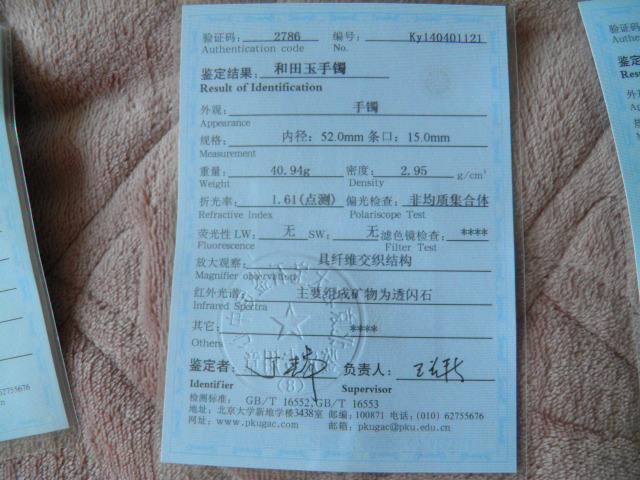 验证码: 2786 编号: Ky140401121
Authentication code No.
鉴定结果: 和田玉手镯
Result of Identification
外观: 手镯
Appearance
规格: 内径: 52.0mm 条口: 15.0mm
Measurement
重量: 40.94g 密度: 2.95 g/cm³
Weight Density
折光率: 1.61(点测) 偏光检查: 非均质集合体
Refractive index Polariscope Test
荧光性 LW: 无 SW: 无 滤色镜检查: ****
Fluorescence Filter Test
放大观察: 具纤维交织结构
Magnifier observation
红外光谱: 主要组成矿物为透闪石
Infrared Spectra
其它: ****
Others
鉴定者: 负责人:
Identifier Supervisor
(B)
检测标准: GB/T 16552,GB/T 16553
地址: 北京大学新地学楼3438室 邮编: 100871 电话: (010) 62755676
网址: www.pkugac.com 邮箱: pkugac@pku.edu.cn
62755676
验证码
Authe
No.
鉴定
Resu
外观